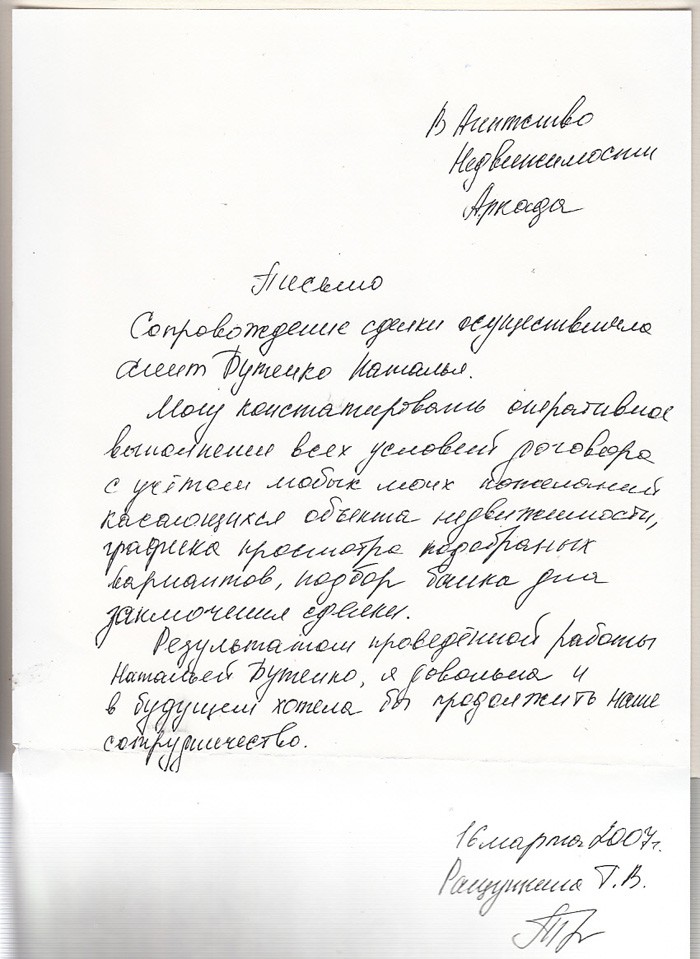 В Агентство
Недвижимости
Аркада
Письмо
Сопровождение сделки осуществляла
агент Бутенко Наталья.
Могу констатировать оперативное
выполнение всех условий договора
с учётом любых моих пожеланий
касающихся объекта недвижимости,
графика просмотра подобраных
вариантов, подбор банка для
заключения сделки.
Результатом проведённой работы
Натальей Бутенко, я довольна и
в будущем хотела бы продолжить наше
сотрудничество.
16 марта 2007г.
Т.В.